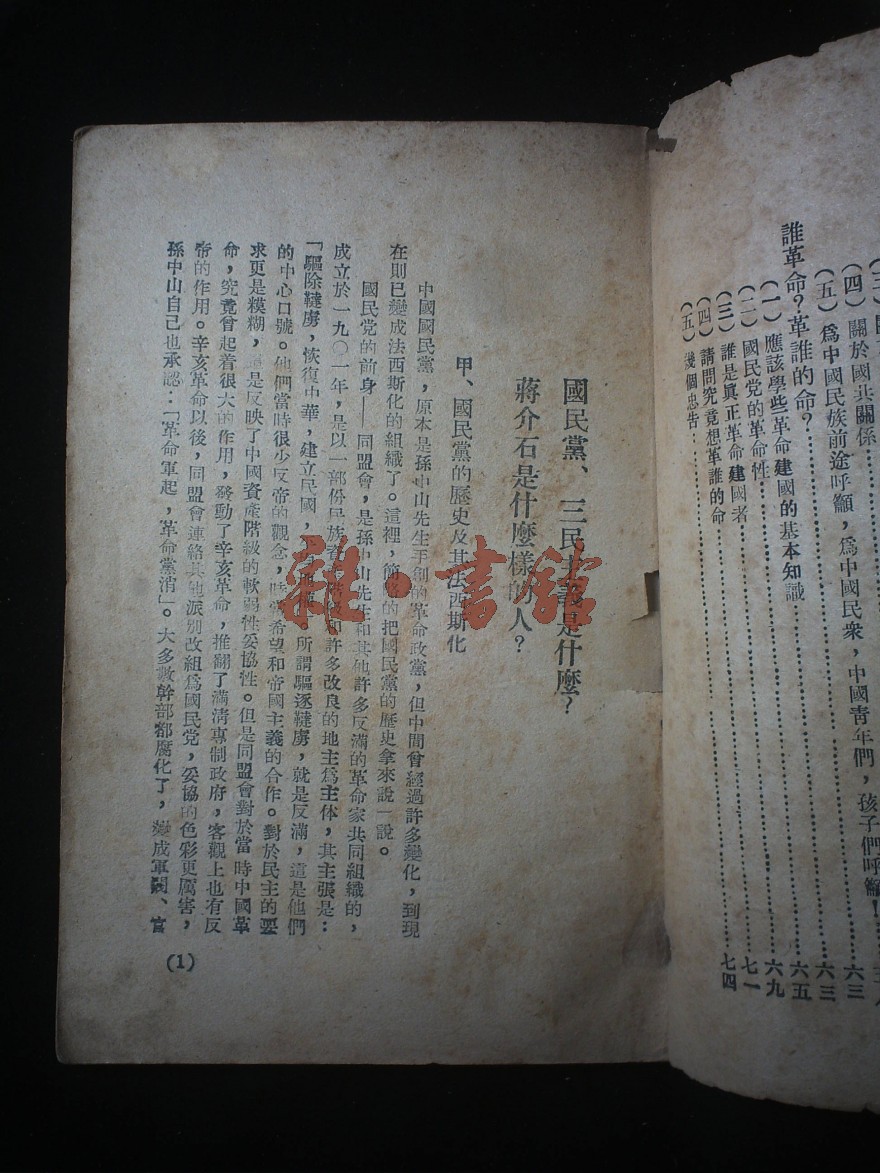 (四)關於國共關係
(五)爲中國民族前途呼籲,爲中國民衆,中國青年們,孩子們呼籲!……六三
誰革命?革誰的命?……六三
(一)應該學些革命建國的基本知識……六五
(二)國民党的革命性……六九
(三)誰是眞正革命建國者……七一
(四)請問究竟想革誰的命……七四
(五)幾個忠告:……
國民黨、三民主義是什麼?
蔣介石是什麼樣的人?
甲、國民黨的歷史及其法西斯化
中國國民黨,原本是孫中山先生手創的革命政黨,但中間曾經過許多變化,到現
在則已變成法西斯化的組織了。這裡,簡畧的把國民黨的歷史拿來說一說。
國民党的前身——同盟會,是孫中山先生和其他許多反滿的革命家共同組織的,
成立於一九〇一年,是以一部份民族資產階級和許多改良的地主爲主体,其主張是:
「驅除韃虜,恢復中華,建立民國,平均地權」。所謂驅逐韃虜,就是反滿,這是他們
的中心口號。他們當時很少反帝的觀念,時常希望和帝國主義的合作。對於民主的要
求更是糢糊,是反映了中國資產階級的軟弱性妥協性。但是同盟會對於當時中國革
命,究竟曾起着很大的作用,發動了辛亥革命,推翻了滿清專制政府,客觀上也有反
帝的作用。辛亥革命以後,同盟會連絡其他派別改組爲國民党,妥協的色彩更厲害,
孫中山自己也承認:「革命軍起,革命黨消」。大多數幹部都腐化了,變成軍閥、官
(1)
雜·書館